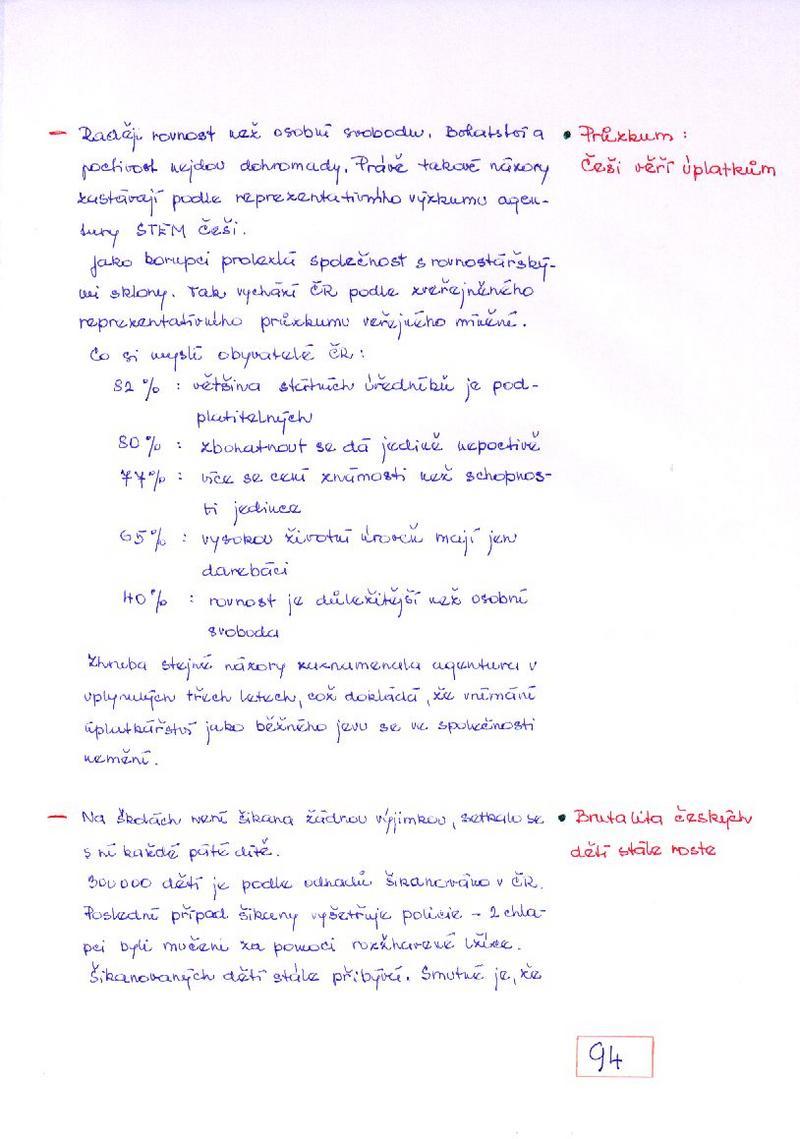 – Raději rovnost než osobní svobodu. Bohatství a
poctivost nejdou dohromady. Právě takové názory
zastávají podle reprezentativního výzkumu agen-
tury STEM Češi.
Jako korupcí prolezlá společnost s rovnostářský-
mi sklony. Tak vychází ČR podle zveřejněného
reprezentativního průzkumu veřejného mínění.
Co si myslí obyvatelé ČR:
82% : většina státních úředníků je pod-
platitelných
80% : zbohatnout se dá jedině nepoctivě
77% : více se cení známosti než schopnos-
ti jedince
65% : vysokou životní úroveň mají jen
darebáci
40% : rovnost je důležitější než osobní
svoboda
Zhruba stejné názory zaznamenala agentura v
uplynulých třech letech, což dokládá, že vnímání
úplatkářství jako běžného jevu se ve společnosti
nemění.
• Průzkum:
Češi věří úplatkům
– Na školách není šikana žádnou výjimkou, setkalo se
s ní každé páté dítě.
300 000 dětí je podle odhadů šikanováno v ČR.
Poslední případ šikany vyšetřuje policie – 2 chla-
pci byli mučeni za pomoci rozžhavené lžíce.
Šikanovaných dětí stále přibývá. Smutné je, že
• Brutalita českých
dětí stále roste
94